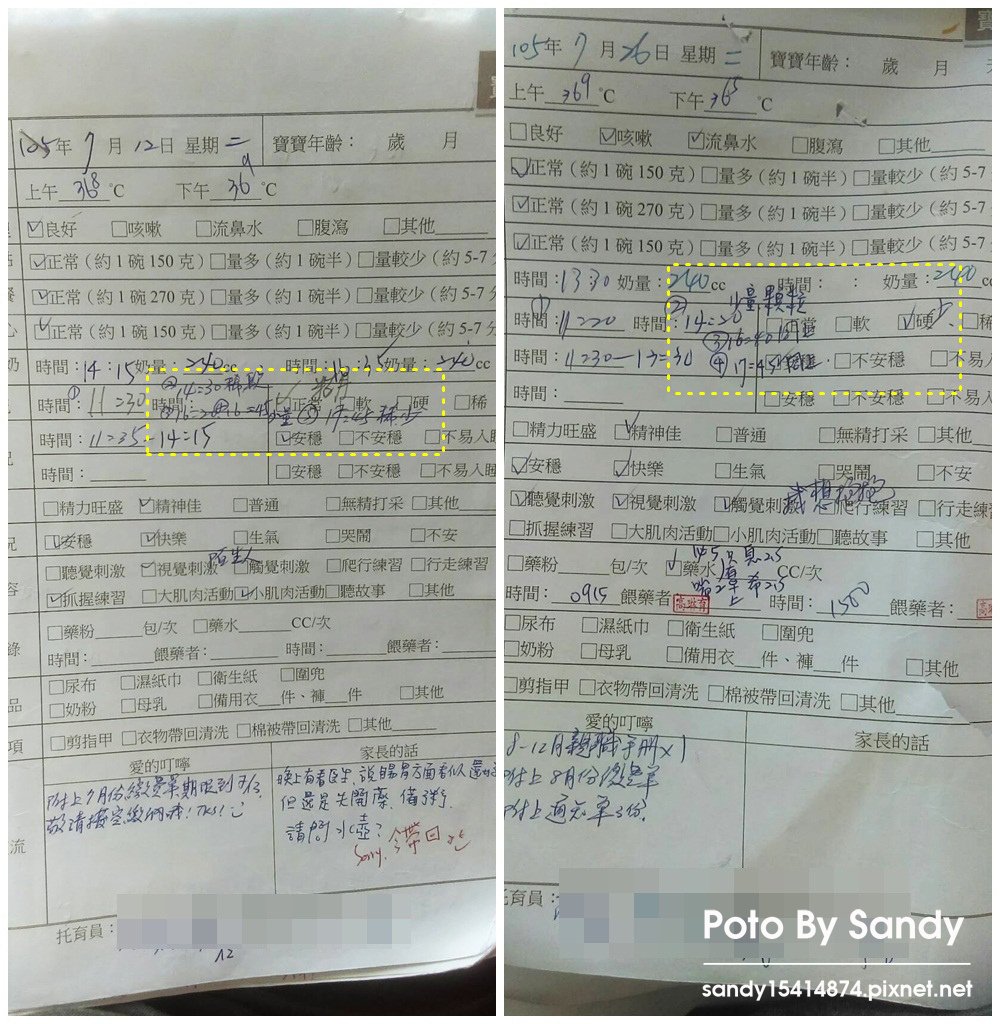 105年 7 月 12日 星期 二 寶寶年齡： 歲 月
上午 36.8 °C 下午 36.9 °C
☑良好 □咳嗽 □流鼻水 □腹瀉 □其他
☑正常（約1碗150克）□量多（約1碗半）□量較少（約5-7
☑正常（約1碗270克）□量多（約1碗半）□量較少（約5-7
☑正常（約1碗150克）□量多（約1碗半）□量較少（約5-7
時間：14：15 奶量：240cc 時間： 奶量：240cc
② 14=30 稀
時間：① 11=30 時間： 正常 □軟 □硬 □稀
16=45 ⑤ 17=45 稀
時間：11=35-14=15 ☑安穩 □不安穩 □不易入睡
時間： □安穩 □不安穩 □不易入睡
□精力旺盛 ☑精神佳 □普通 □無精打采 □其他
☑安穩 ☑快樂 □生氣 □哭鬧 □不安
陌生人
□聽覺刺激 ☑視覺刺激 □觸覺刺激 □爬行練習 □行走練習
☑抓握練習 □大肌肉活動 ☑小肌肉活動 □聽故事 □其他
□藥粉 包/次 □藥水 CC/次
時間： 餵藥者： 時間： 餵藥者：
□尿布 □濕紙巾 □衛生紙 □圍兜
□奶粉 □母乳 □備用衣 件、褲 件 □其他
□剪指甲 □衣物帶回清洗 □棉被帶回清洗 □其他
愛的叮嚀
附上7月份繳費單期限到
敬請撥空繳納哦！TKS！
家長的話
晚上有看醫生，說腸胃方面看似還
但還是先開藥，備粥
請問水壺？
Sorry, 今帶回
流
托育員：
12
105年 7 月 26日 星期 二 寶寶年齡： 歲 月
上午 36.9 °C 下午 36.5 °C
□良好 ☑咳嗽 ☑流鼻水 □腹瀉 □其他
☑正常（約1碗150克）□量多（約1碗半）□量較少（約5-7
☑正常（約1碗270克）□量多（約1碗半）□量較少（約5-7
☑正常（約1碗150克）□量多（約1碗半）□量較少（約5-7
時間：1330 奶量：240cc 時間： ： 奶量：240cc
② 少量顆粒
時間：① 11=20 時間：14=20 正常 □軟 ☑硬 □稀
③ 16=40
時間：11=30-13=30 ④ 17=45 □不安穩 □不易入
時間： □安穩 □不安穩 □不
□精力旺盛 ☑精神佳 □普通 □無精打采 □其他
☑安穩 ☑快樂 □生氣 □哭鬧 □不安
想抱抱
☑聽覺刺激 ☑視覺刺激 ☑觸覺刺激 □爬行練習 □行走練
□抓握練習 □大肌肉活動 □小肌肉活動 □聽故事 □其他
□藥粉 包/次 ☑藥水 CC/次
時間：0915 餵藥者： 時間：1500 餵藥者：
□尿布 □濕紙巾 □衛生紙 □圍兜
□奶粉 □母乳 □備用衣 件、褲 件 □其他
□剪指甲 □衣物帶回清洗 □棉被帶回清洗 □其他
愛的叮嚀
8-12月親職手冊x1
附上8月份繳費單
附上週
家長的話
托育員：
Poto By Sandy
sandy15414874.pixnet.net